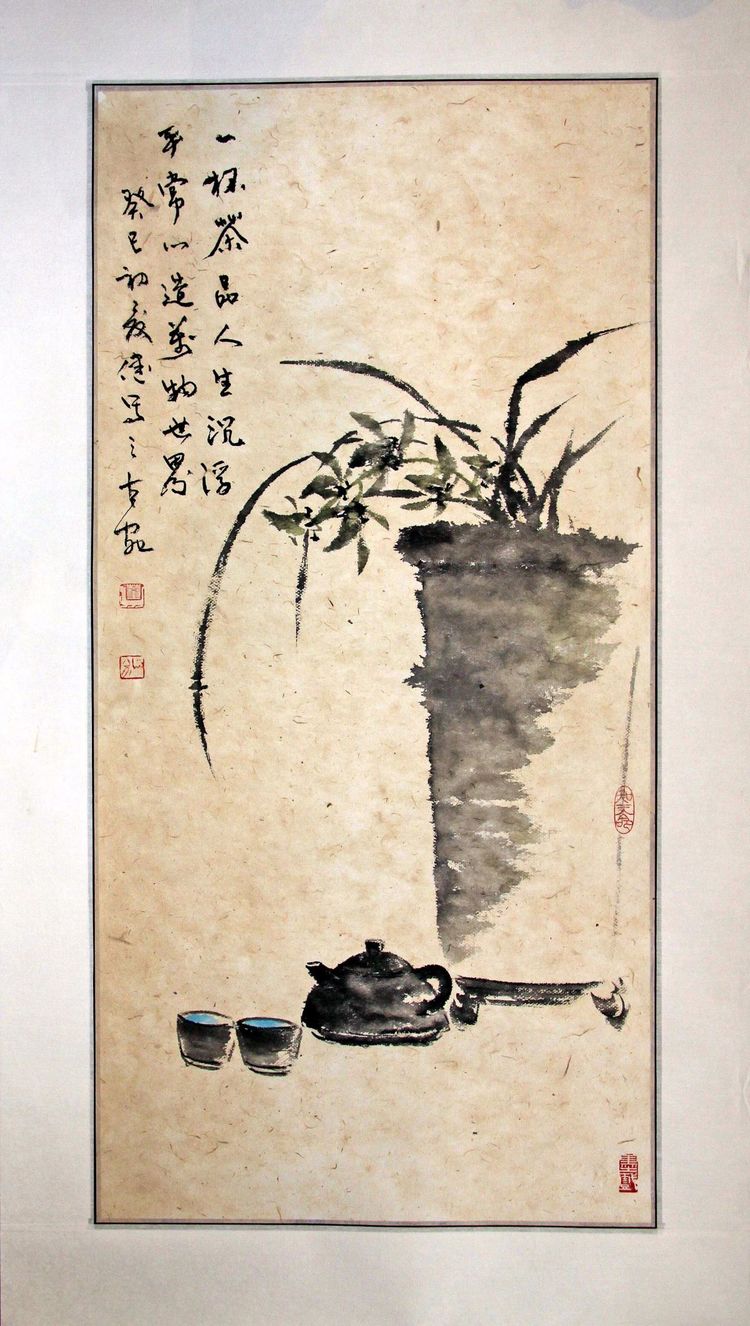 一杯茶品人生沉浮
平常心造萬物世界
癸巳初夏写之古